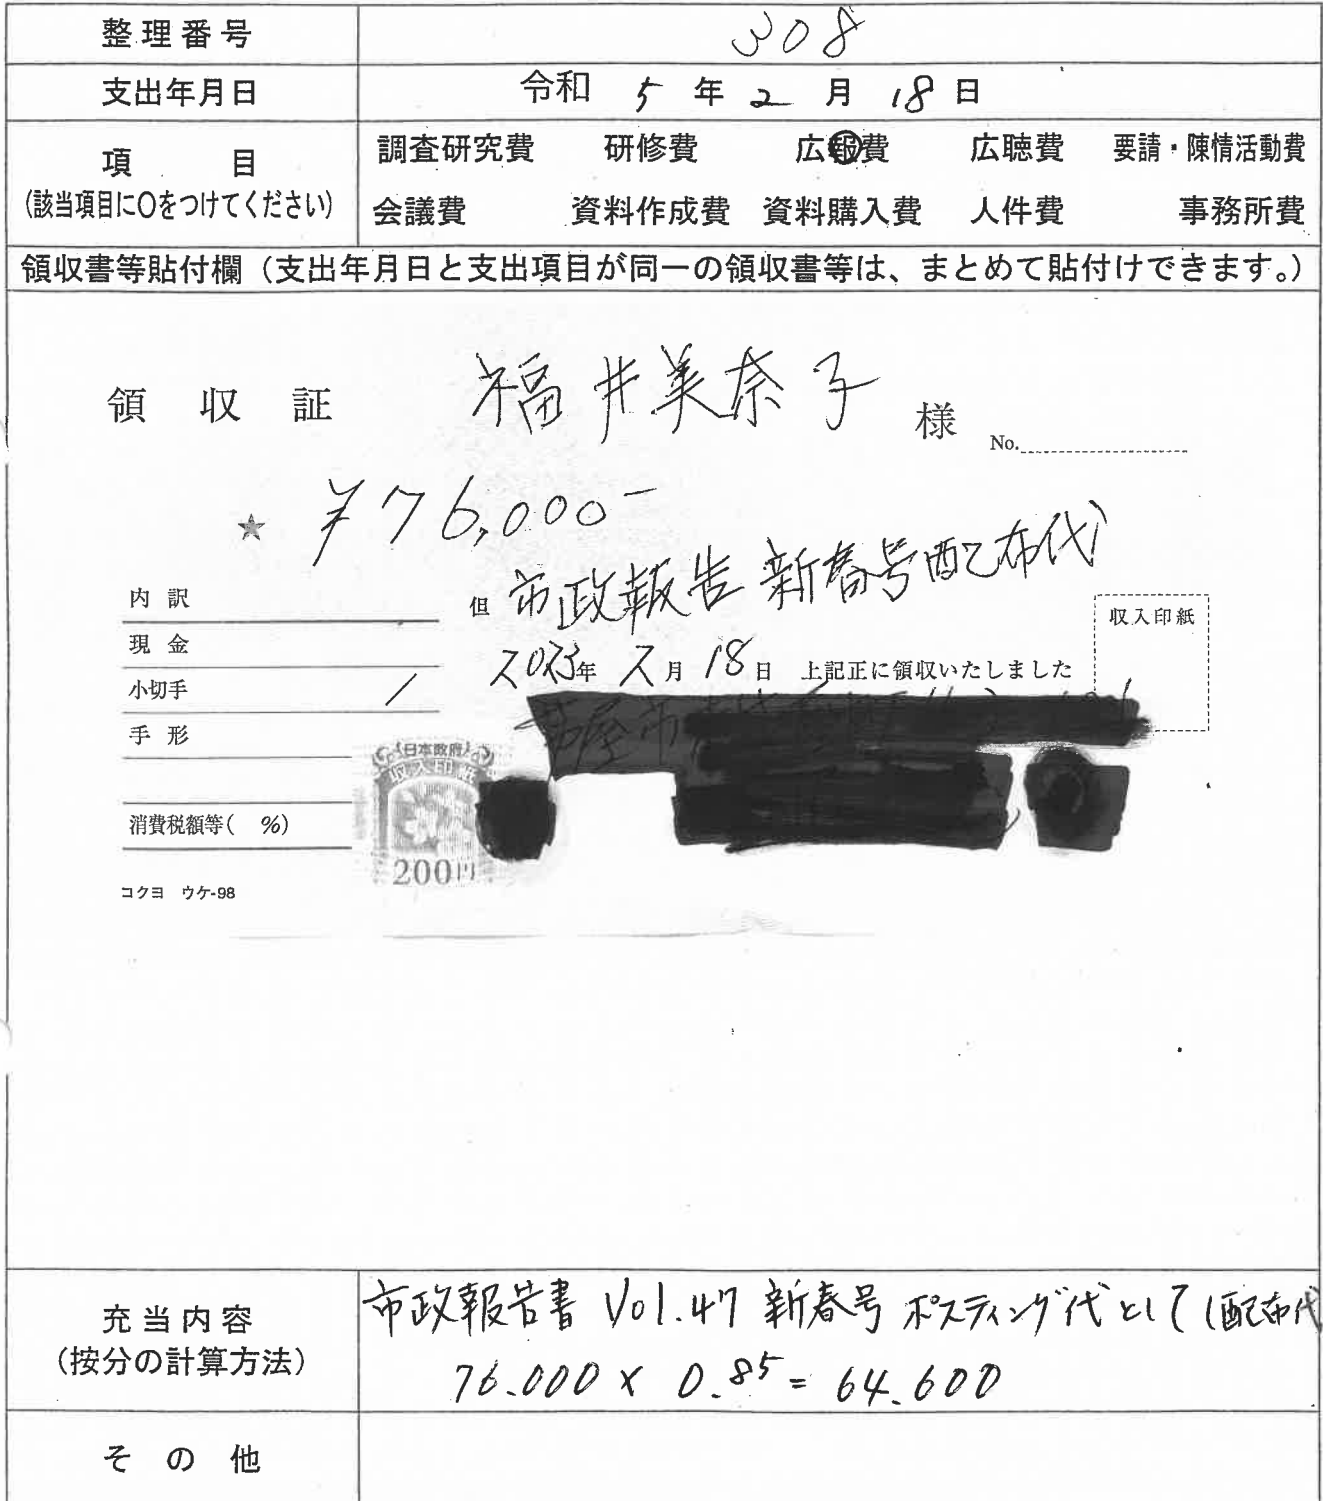 整理番号 308
支出年月日 令和 5 年 2 月 18 日
項 目
(該当項目に○をつけてください)
調査研究費 研修費 広報費 広聴費 要請・陳情活動費
会議費 資料作成費 資料購入費 人件費 事務所費
領収書等貼付欄（支出年月日と支出項目が同一の領収書等は、まとめて貼付けできます。）
領 収 証 福井美奈子 様 No.
★ ¥76,000-
但 市政報告 新春号配布代
内 訳
現 金
小切手
手 形
消費税額等( %)
コクヨ ウケ-98
2023年 2月 18日 上記正に領収いたしました
収入印紙
日本政府
収入印紙
200円
充当内容
（按分の計算方法）
市政報告書 Vol.47 新春号 ポスティング代として(配布代
76.000 × 0.85 = 64.600
そ の 他